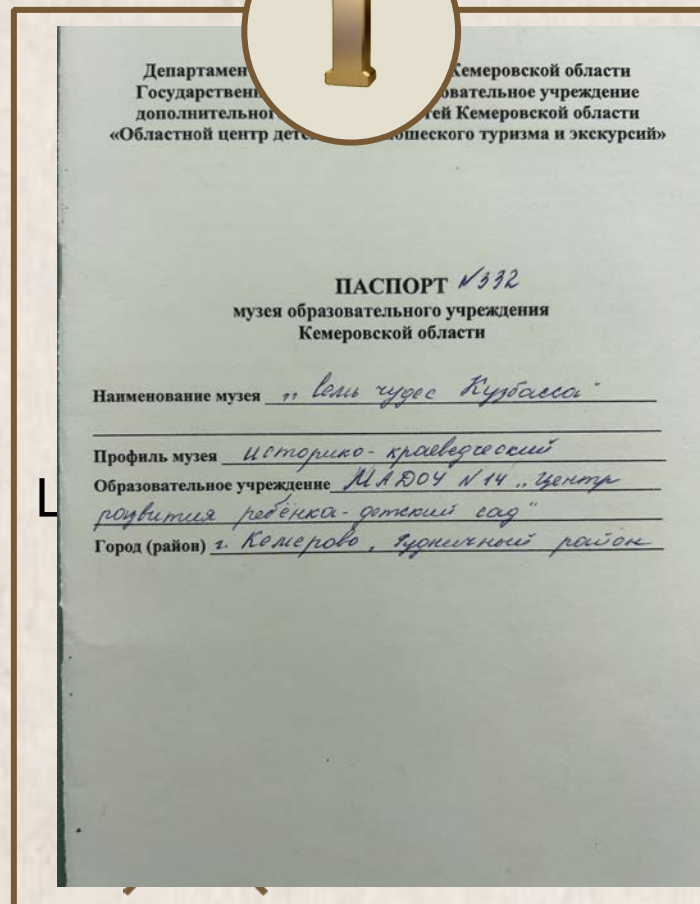 1
Департамен Кемеровской области
Государственн овательное учреждение
дополнительног тей Кемеровской области
«Областной центр детс ошеского туризма и экскурсий»
ПАСПОРТ №332
музея образовательного учреждения
Кемеровской области
Наименование музея „Семь чудес Кузбасса“
Профиль музея историко-краеведческий
Образовательное учреждение МАДОУ №14 „Центр
развития ребёнка-детский сад"
Город (район) г. Кемерово, Рудничный район